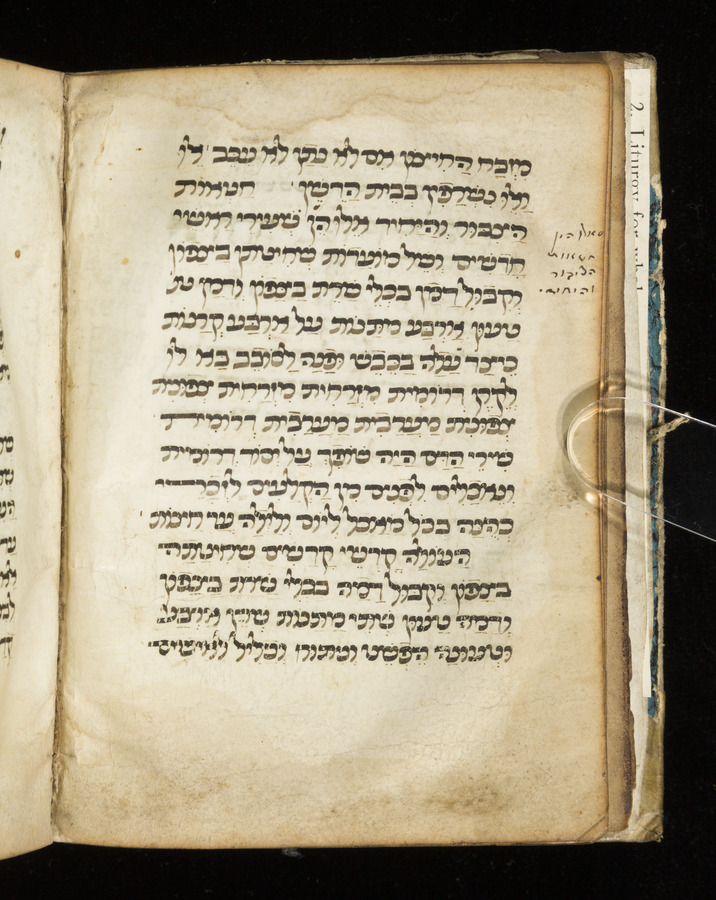 מזבח החיצון אם לא נתן לא עכב אלו
ואלו נשרפין בבית הדשן חטאות
הצבור והיחיד אלו הן שעירי ראשי
חדשים ושל מועדות שחיטתן בצפון
וקבול דמן בכלי שרת בצפון ודמן טע
טעון ארבע מתנות על ארבע קרנות
כיצד עלה בכבש ופנה לסובב בא לו
לקרן דרומית מזרחית מזרחית צפונית
צפונית מערבית מערבית דרומית
שירי הדם היה שופך על יסוד דרומית
ונאכלים לפנים מן הקלעים לזכרי
כהנה בכל מאכל ליום ולילה עד חצות
העולה קדשי קדשים שחיטתה
בצפון וקבול דמה בכלי שרת בצפון
ודמה טעון שתי מתנות שהן ארבע
וטעונה הפשט ונתוח וכליל לאישים
הן
חטאות
הציבור
והיחיד
2. Liturgy for